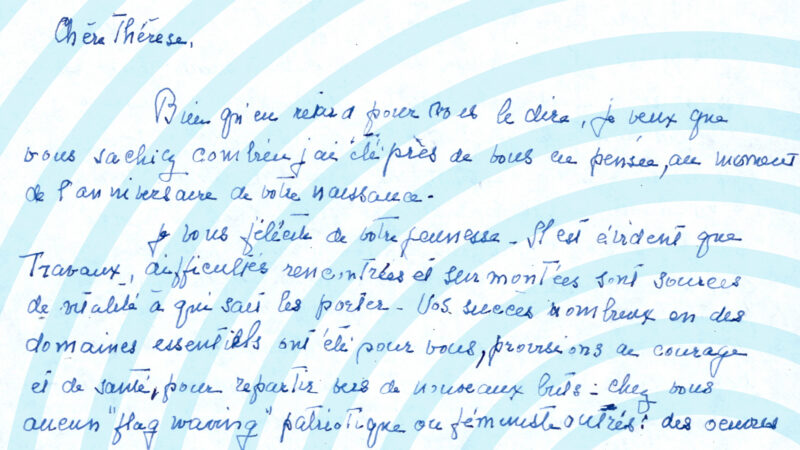 Chère Thérèse,
Bien qu'en retard pour vous le dire, je veux que
vous sachiez combien j'ai été près de vous en pensée, au moment
de l'anniversaire de votre naissance.
Je vous félicite de votre jeunesse - Il est évident que
Travaux, difficultés rencontrées et surmontées sont sources
de vitalité à qui sait les porter - Vos succès nombreux en des
domaines essentiels ont été pour vous, provisions de courage
et de santé, pour repartir vers de nouveaux buts - chez vous
aucun "flag waving" patriotique ou féministe outrés : des oeuvres